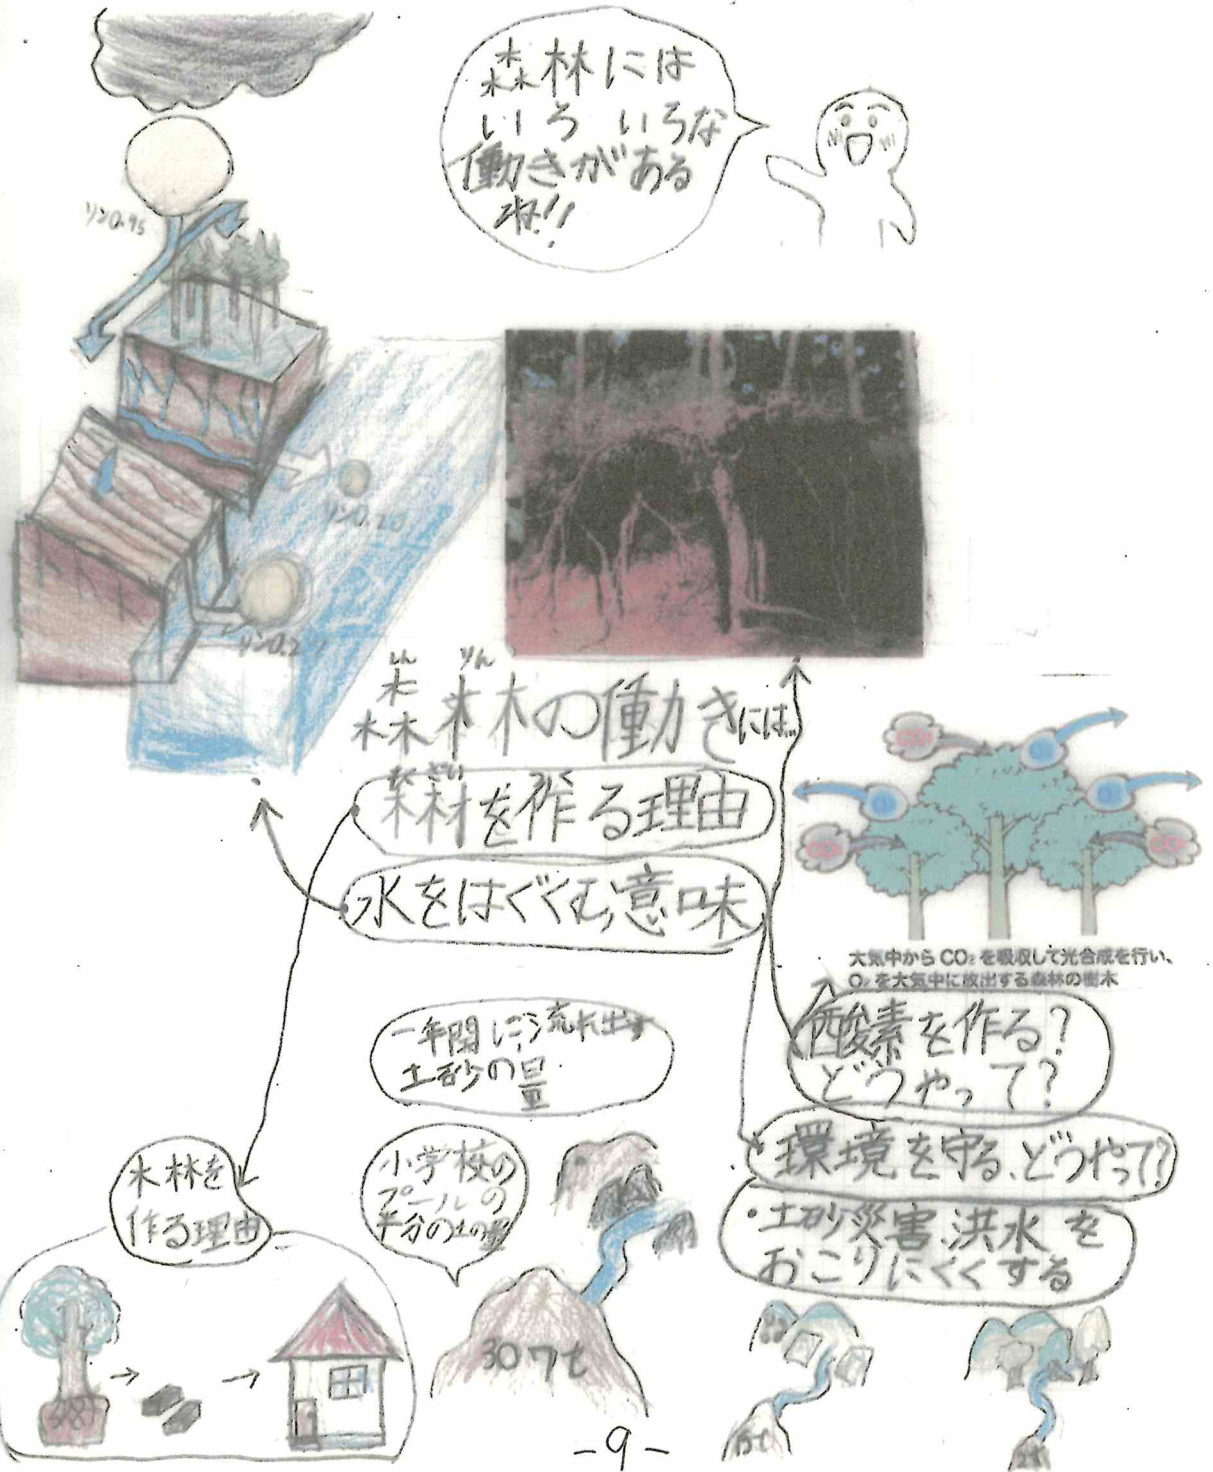 森林には
いろいろな
働きがある
ね!!
リン0.95
リン0.20
しん りん
森林の働きには...
もくざい つく
木材を作る理由
水をはぐくむ意味
CO₂
O₂
O₂
O₂
CO₂
CO₂
大気中からCO₂を吸収して光合成を行い、
O₂を大気中に放出する森林の樹木
酸素を作る?
どうやって?
環境を守る、どうやって?
・土砂災害、洪水を
おこりにくくする
一年間に流れ出す
土砂の量
小学校の
プールの
半分の土の量
307t
木材を
作る理由
-9-